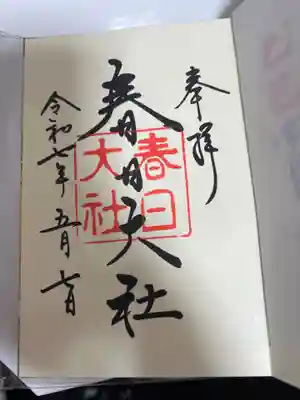 奉拝
春日大社
春日
大社
令和七年五月七日